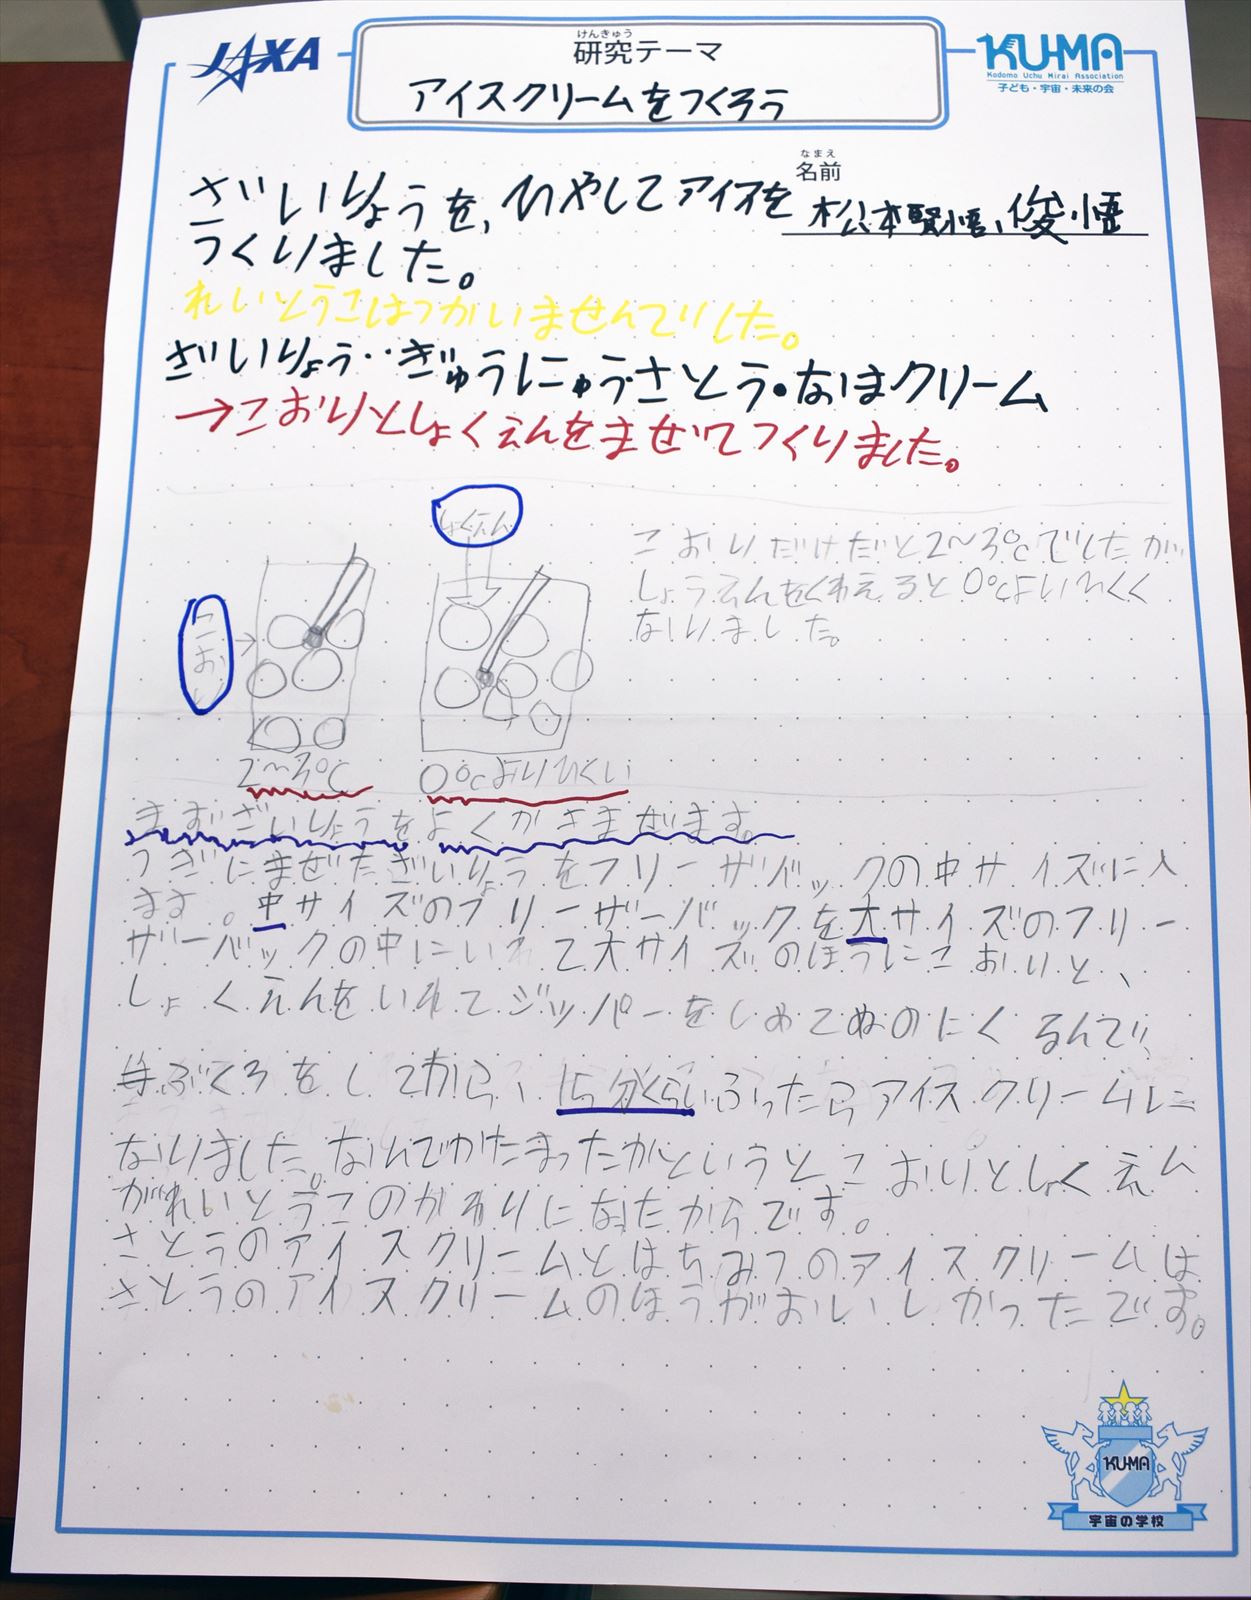 JAXA
けんきゅう
研究テーマ
アイスクリームをつくろう
KU-MA
Kodomo Uchu Mirai Association
子ども・宇宙・未来の会
なまえ
名前
松本賢悟、俊悟
ざいりょうを、ひやしてアイスを
つくりました。
れいとうこはつかいませんでした。
ざいりょう‥ぎゅうにゅう・さとう・なまクリーム
→こおりとしょくえんをまぜてつくりました。
しょくえん
こおり
2〜3℃
0℃よりひくい
こおりだけだと2〜3℃でしたが
しょうえんをくわえると0℃よりひくく
なりました。
まずざいりょうをよくかきまぜます。
つぎにまぜたざいりょうをフリーザバックの中サイズに入
ます。中サイズのフリーザーバックを大サイズのフリー
ザーバックの中にいれて大サイズのほうにこおりと、
しょくえんをいれてジッパーをしめてぬのにくるんで、
手ぶくろをしてから、15分くらいふったらアイスクリームに
なりました。なんでかたまったかというとこおりとしょくえん
がれいとうこのかわりになったからです。
さとうのアイスクリームとはちみつのアイスクリームは
さとうのアイスクリームのほうがおいしかったです。
KU-MA
宇宙の学校